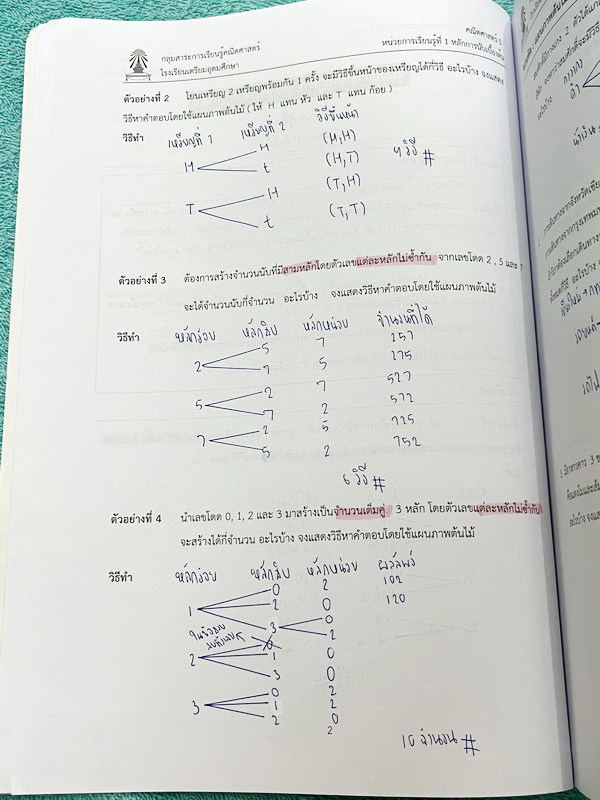 กลุ่มสาระการเรียนรู้คณิตศาสตร์
โรงเรียนเตรียมอุดมศึกษา
คณิตศาสตร์ 5
หน่วยการเรียนรู้ที่ 1 หลักการนับเบื้องต้น
ตัวอย่างที่ 2 โยนเหรียญ 2 เหรียญพร้อมกัน 1 ครั้ง จะมีวิธีขึ้นหน้าของเหรียญได้กี่วิธี อะไรบ้าง จงแสดง
วิธีหาคำตอบโดยใช้แผนภาพต้นไม้ ( ให้ H แทน หัว และ T แทน ก้อย )
วิธีทำ เหรียญที่ 1 เหรียญที่ 2 วิธีขึ้นหน้า
H (H,H)
H t (H,T) 4 วิธี #
H (T,H)
T t (T,T)
ตัวอย่างที่ 3 ต้องการสร้างจำนวนนับที่มีสามหลักโดยตัวเลขแต่ละหลักไม่ซ้ำกัน จากเลขโดด 2 , 5 และ 7
จะได้จำนวนนับกี่จำนวน อะไรบ้าง จงแสดงวิธีหาคำตอบโดยใช้แผนภาพต้นไม้
วิธีทำ หลักร้อย หลักสิบ หลักหน่วย จำนวนที่ได้
5 7 257
2 7 5 275
2 7 527
5 7 2 572
2 5 725
7 5 2 752
6 วิธี #
ตัวอย่างที่ 4 นำเลขโดด 0, 1, 2 และ 3 มาสร้างเป็นจำนวนเต็มคู่ 3 หลัก โดยตัวเลขแต่ละหลักไม่ซ้ำกัน
จะสร้างได้กี่จำนวน อะไรบ้าง จงแสดงวิธีหาคำตอบโดยใช้แผนภาพต้นไม้
วิธีทำ หลักร้อย หลักสิบ หลักหน่วย ผลลัพธ์
0 2 102
1 2 0 120
3 0
2
2 1 0
3 0
0 2
3 1 2
2 0
2
10 จำนวน #